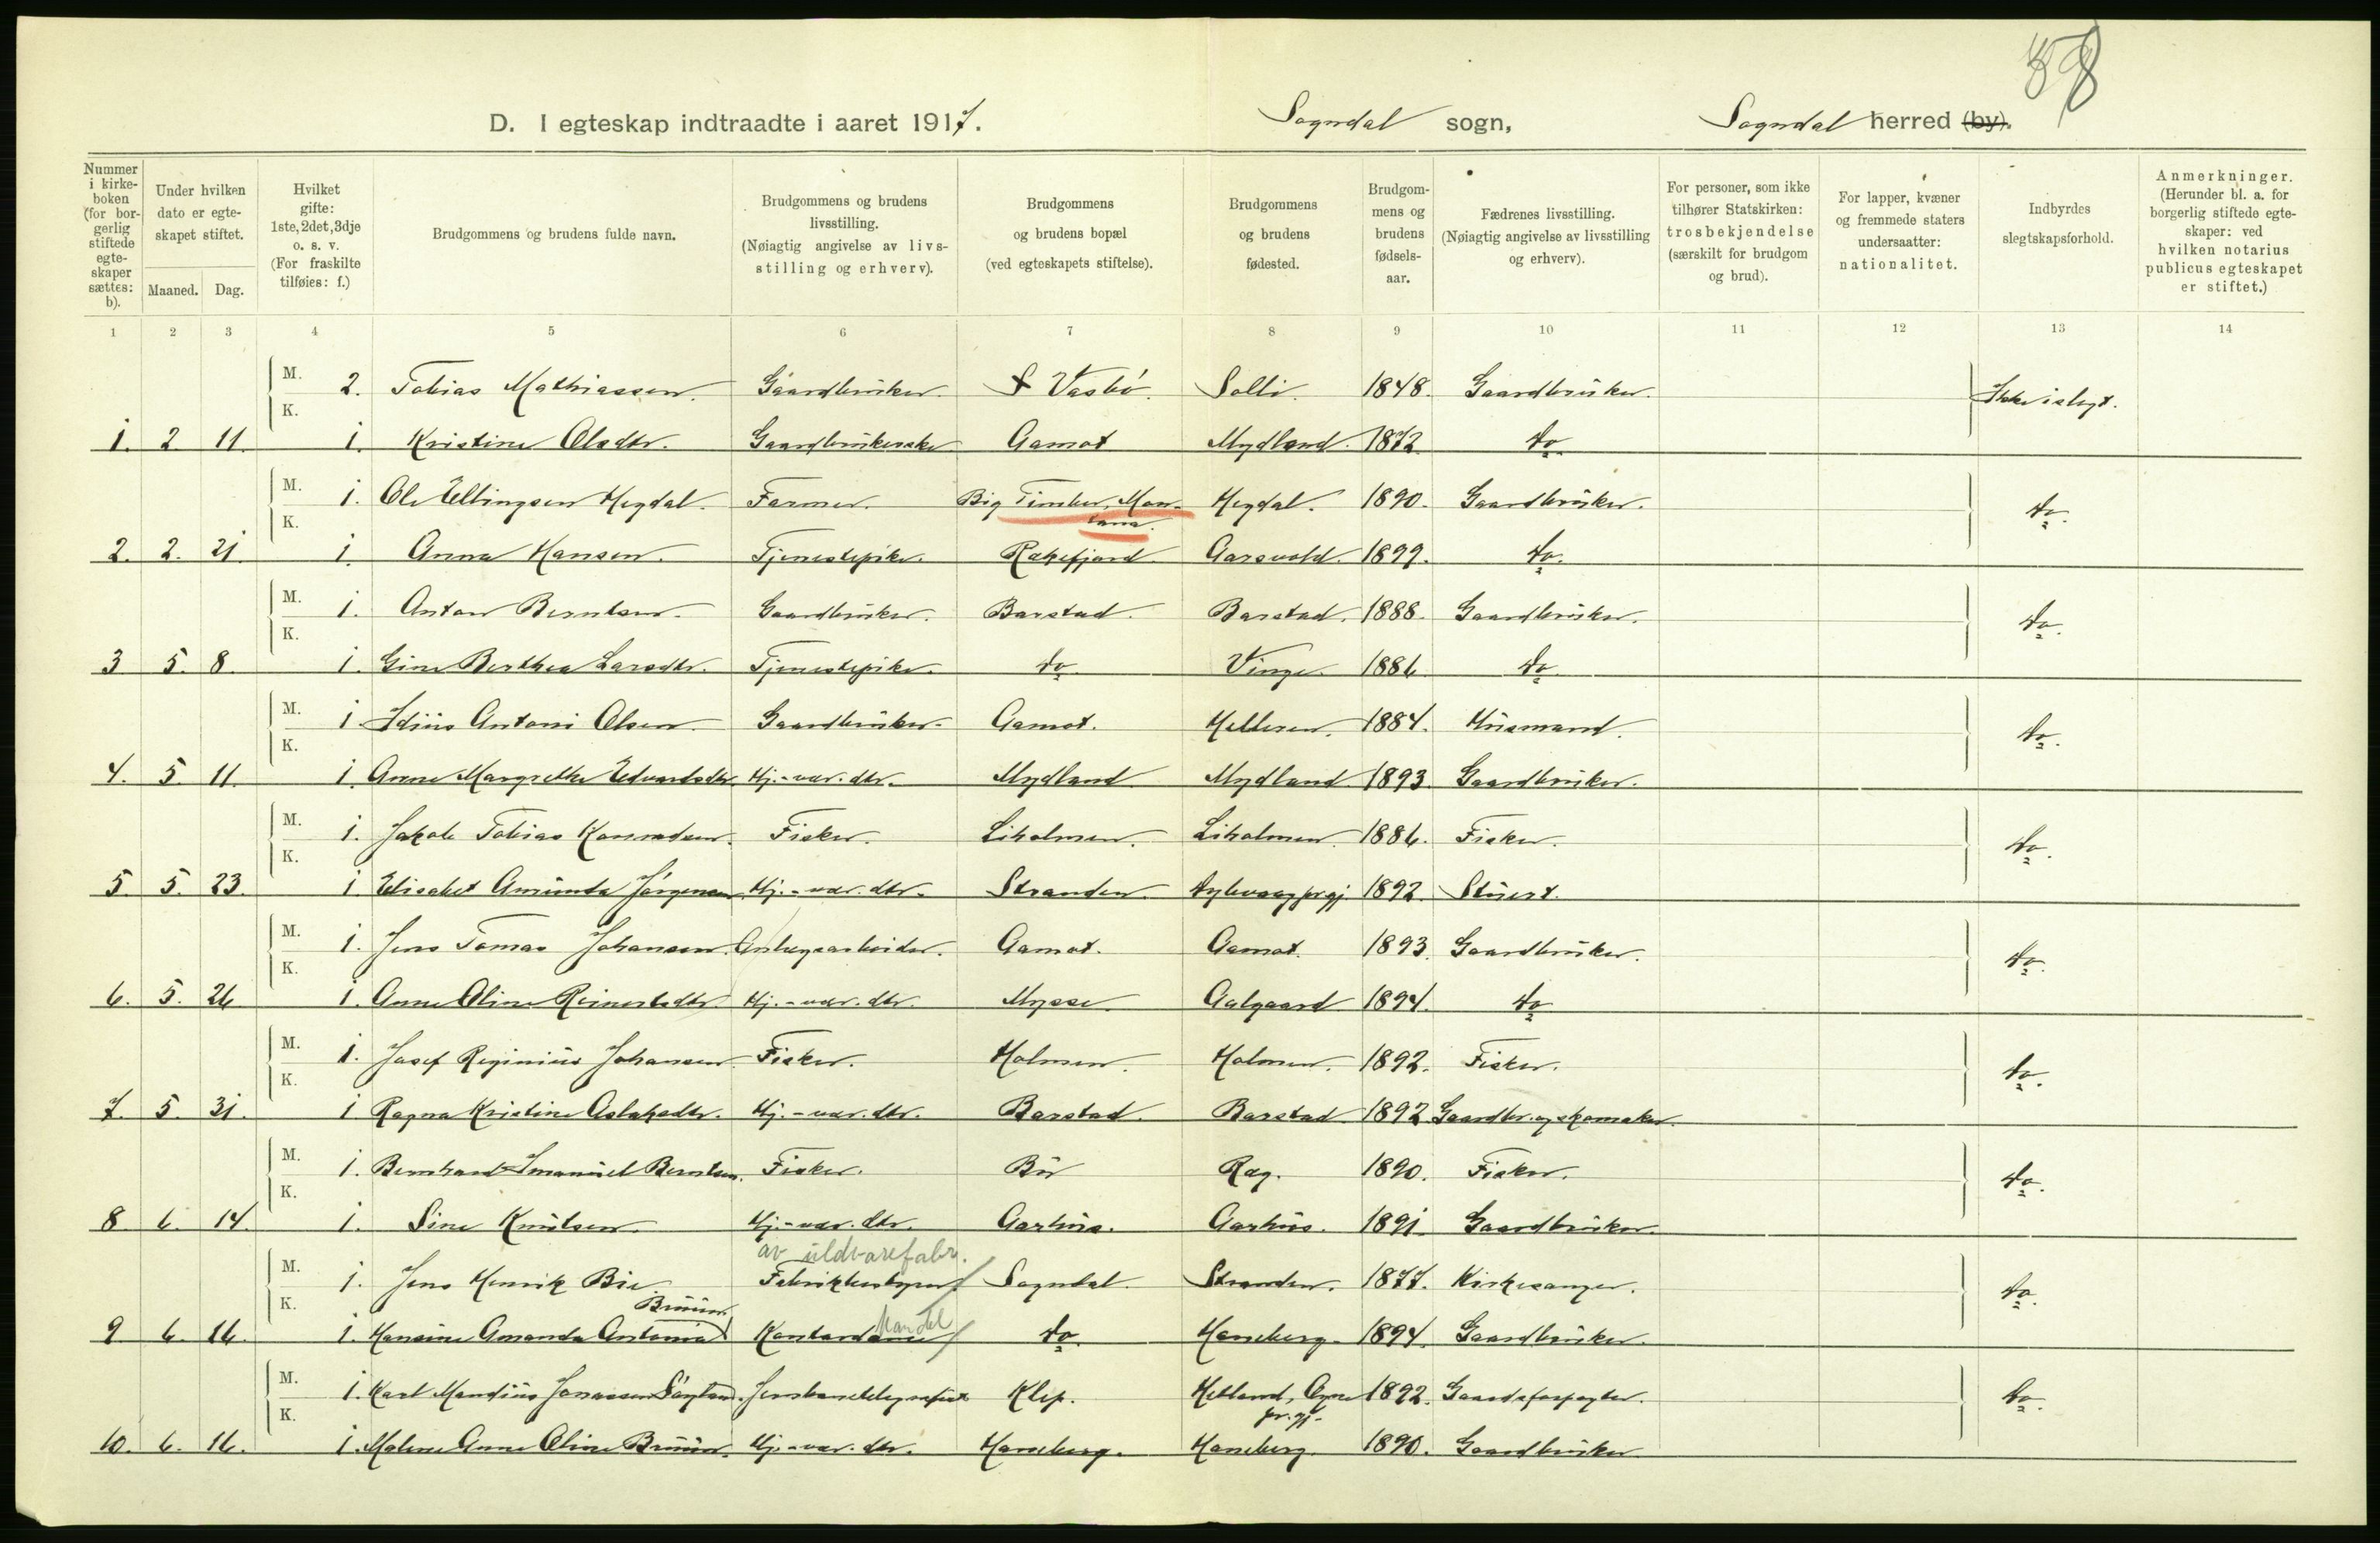 58
D. I egteskap indtraadte i aaret 1917. Sogndal sogn, Sogndal herred (by).
Nummer i kirkeboken (for borgerlig stiftede egteskaper sættes: b).
Under hvilken dato er egteskapet stiftet.
Maaned. Dag.
Hvilket gifte: 1ste, 2det, 3dje o. s. v. (For fraskilte tilføies: f.)
Brudgommens og brudens fulde navn.
Brudgommens og brudens livsstilling. (Nøiagtig angivelse av livsstilling og erhverv).
Brudgommens og brudens bopæl (ved egteskapets stiftelse).
Brudgommens og brudens fødested.
Brudgommens og brudens fødselsaar.
Fædrenes livsstilling. (Nøiagtig angivelse av livsstilling og erhverv).
For personer, som ikke tilhører Statskirken: trosbekjendelse (særskilt for brudgom og brud).
For lapper, kvæner og fremmede staters undersaatter: nationalitet.
Indbyrdes slegtskapsforhold.
Anmerkninger. (Herunder bl. a. for borgerlig stiftede egteskaper: ved hvilken notarius publicus egteskapet er stiftet.)
1 2 3 4 5 6 7 8 9 10 11 12 13 14
M. 2. Tobias Mathiassen. Gaardbruker. Vasbø. Solli. 1848. Gaardbruker. Ikke i slegt.
K. 1. 2. 11. 1. Kristine Olsdtr. Gaardbrukerske Aamot Mydland. 1872. do.
M. 1. Ole Ellingsen Hegdal. Farmer. Big Timber, Montana. Hegdal. 1890. Gaardbruker. do.
K. 2. 2. 21. 1. Anna Hansen. Tjenestepike. Rækefjord Aarsvold. 1899. do.
M. 1. Anton Berntsen. Gaardbruker. Barstad. Barstad. 1888. Gaardbruker. do.
K. 3 5. 8. 1. Gine Berthea Larsdtr. Tjenestepike. do. Vinge. 1886 do.
M. 1. Idius Antoni Olsen. Gaardbruker. Aamot. Helleren. 1884. Husmand. do.
K. 4. 5. 11. 1. Anne Margrethe Edvardsdtr. Hj.-vær. dtr. Mydland. Mydland. 1893. Gaardbruker.
M. 1. Jakob Tobias Konradsen. Fisker. Liholmen. Liholmen. 1886. Fisker. do.
K. 5. 5. 23. 1. Elisabet Amunda Jørgensen. Hj.-vær. dtr. Stranden. Dybvaag prgj. 1892. Stuert.
M. 1. Jens Tomas Johansen. Anlægsarbeider. Aamot. Aamot. 1893. Gaardbruker. do.
K. 6. 5. 26 1. Anne Oline Reinertsdtr. Hj.-vær. dtr. Mysse. Aalgaard 1894. do
M. 1. Josef Reginius Johansen. Fisker. Holmen. Holmen. 1892. Fisker. do.
K. 7. 5. 31. 1. Ragna Kristine Aslaksdtr. Hj.-vær. dtr. Barstad. Barstad. 1892. Gaardbr. og skomaker.
M. 1. Bernhard Imanuel Berntsen. Fisker. Bø Reg. 1890. Fisker. do.
K. 8. 6. 14. 1. Sine Knutsen. Hj.-vær. dtr. Aarhus. Aarhus. 1891. Gaardbruker.
av uldvarefabr.
M. 1. Jens Henrik Bie. Fabrikbestyrer Sogndal. Stranden. 1877. Kirkesanger. do.
Bruun.
K. 9 6. 16. 1. Hansine Amanda Antonia Kontordame Handel do. Haneberg. 1894. Gaardbruker.
M. 1. Karl Mandius Jonassen Jernbanetelegrafist Klep. Hetland, Ogne pr.gj. 1892. Gaardsforpagter. do.
K. 10. 6. 16. 1. Malene Anne Oline Bruun. Hj.-vær. dtr. Haneberg. Haneberg. 1890. Gaardbruker